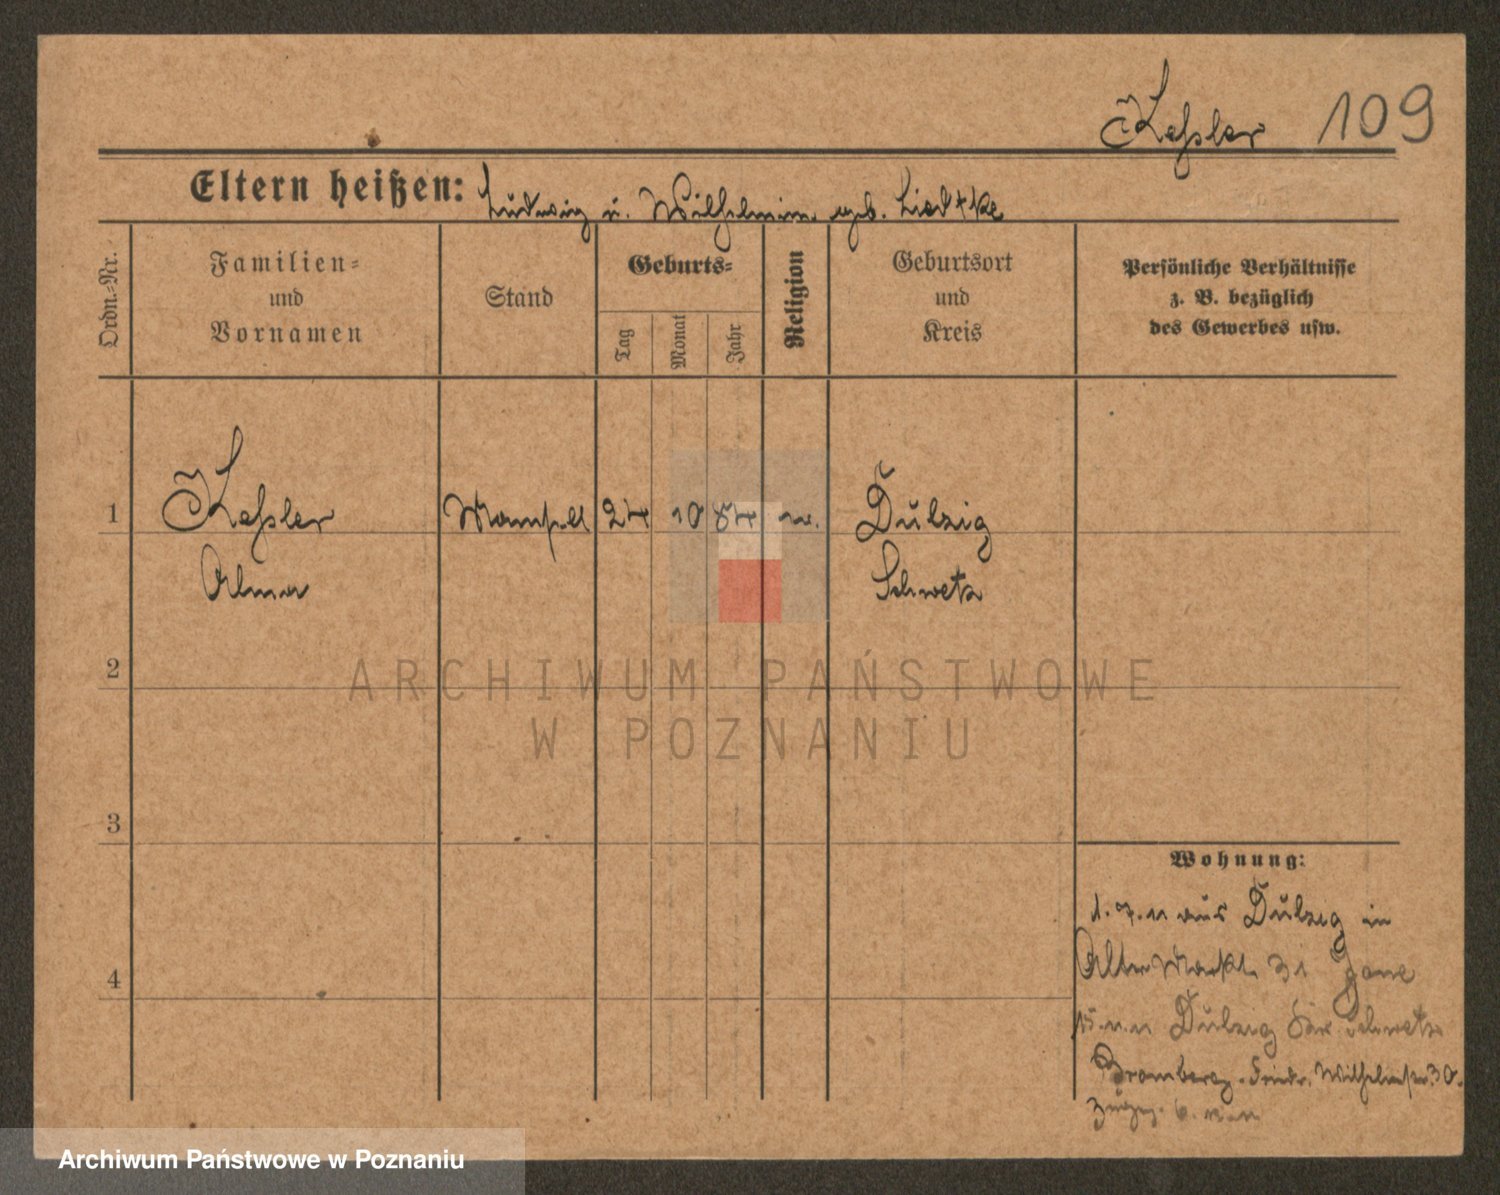 Keßler 109
Eltern heißen: Ludwig u. Wilhelmine geb. Liedtke
Ordn.-Nr.
Familien- und Vornamen
Stand
Geburts-
Tag
Monat
Jahr
Religion
Geburtsort und Kreis
Persönliche Verhältnisse
z. B. bezüglich
des Gewerbes usw.
1 Keßler Mamsell 24 10 84 Dulzig
Alma Schwetz
2
ARCHIWUM PAŃSTWOWE
W POZNANIU
3
4
Wohnung:
1. 7. 11 aus Dulzig in
Alter Markt 31
Dulzig Schwetz
Bromberg. Friedr. Wilhelmstr. 30.
Archiwum Państwowe w Poznaniu